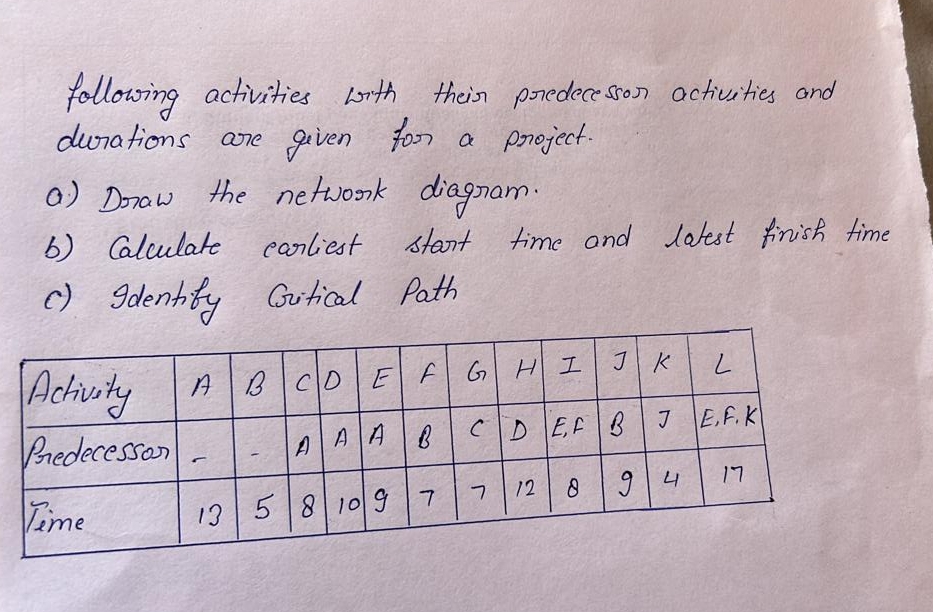 following activities with their predecessor activities and
durations are given for a project.
a) Draw the network diagram.
b) Calculate earliest start time and latest finish time
c) Identify Critical Path
Activity A B C D E F G H I J K L
Predecessor - - A A A B C D E,F B J E,F,K
Time 13 5 8 10 9 7 7 12 8 9 4 17